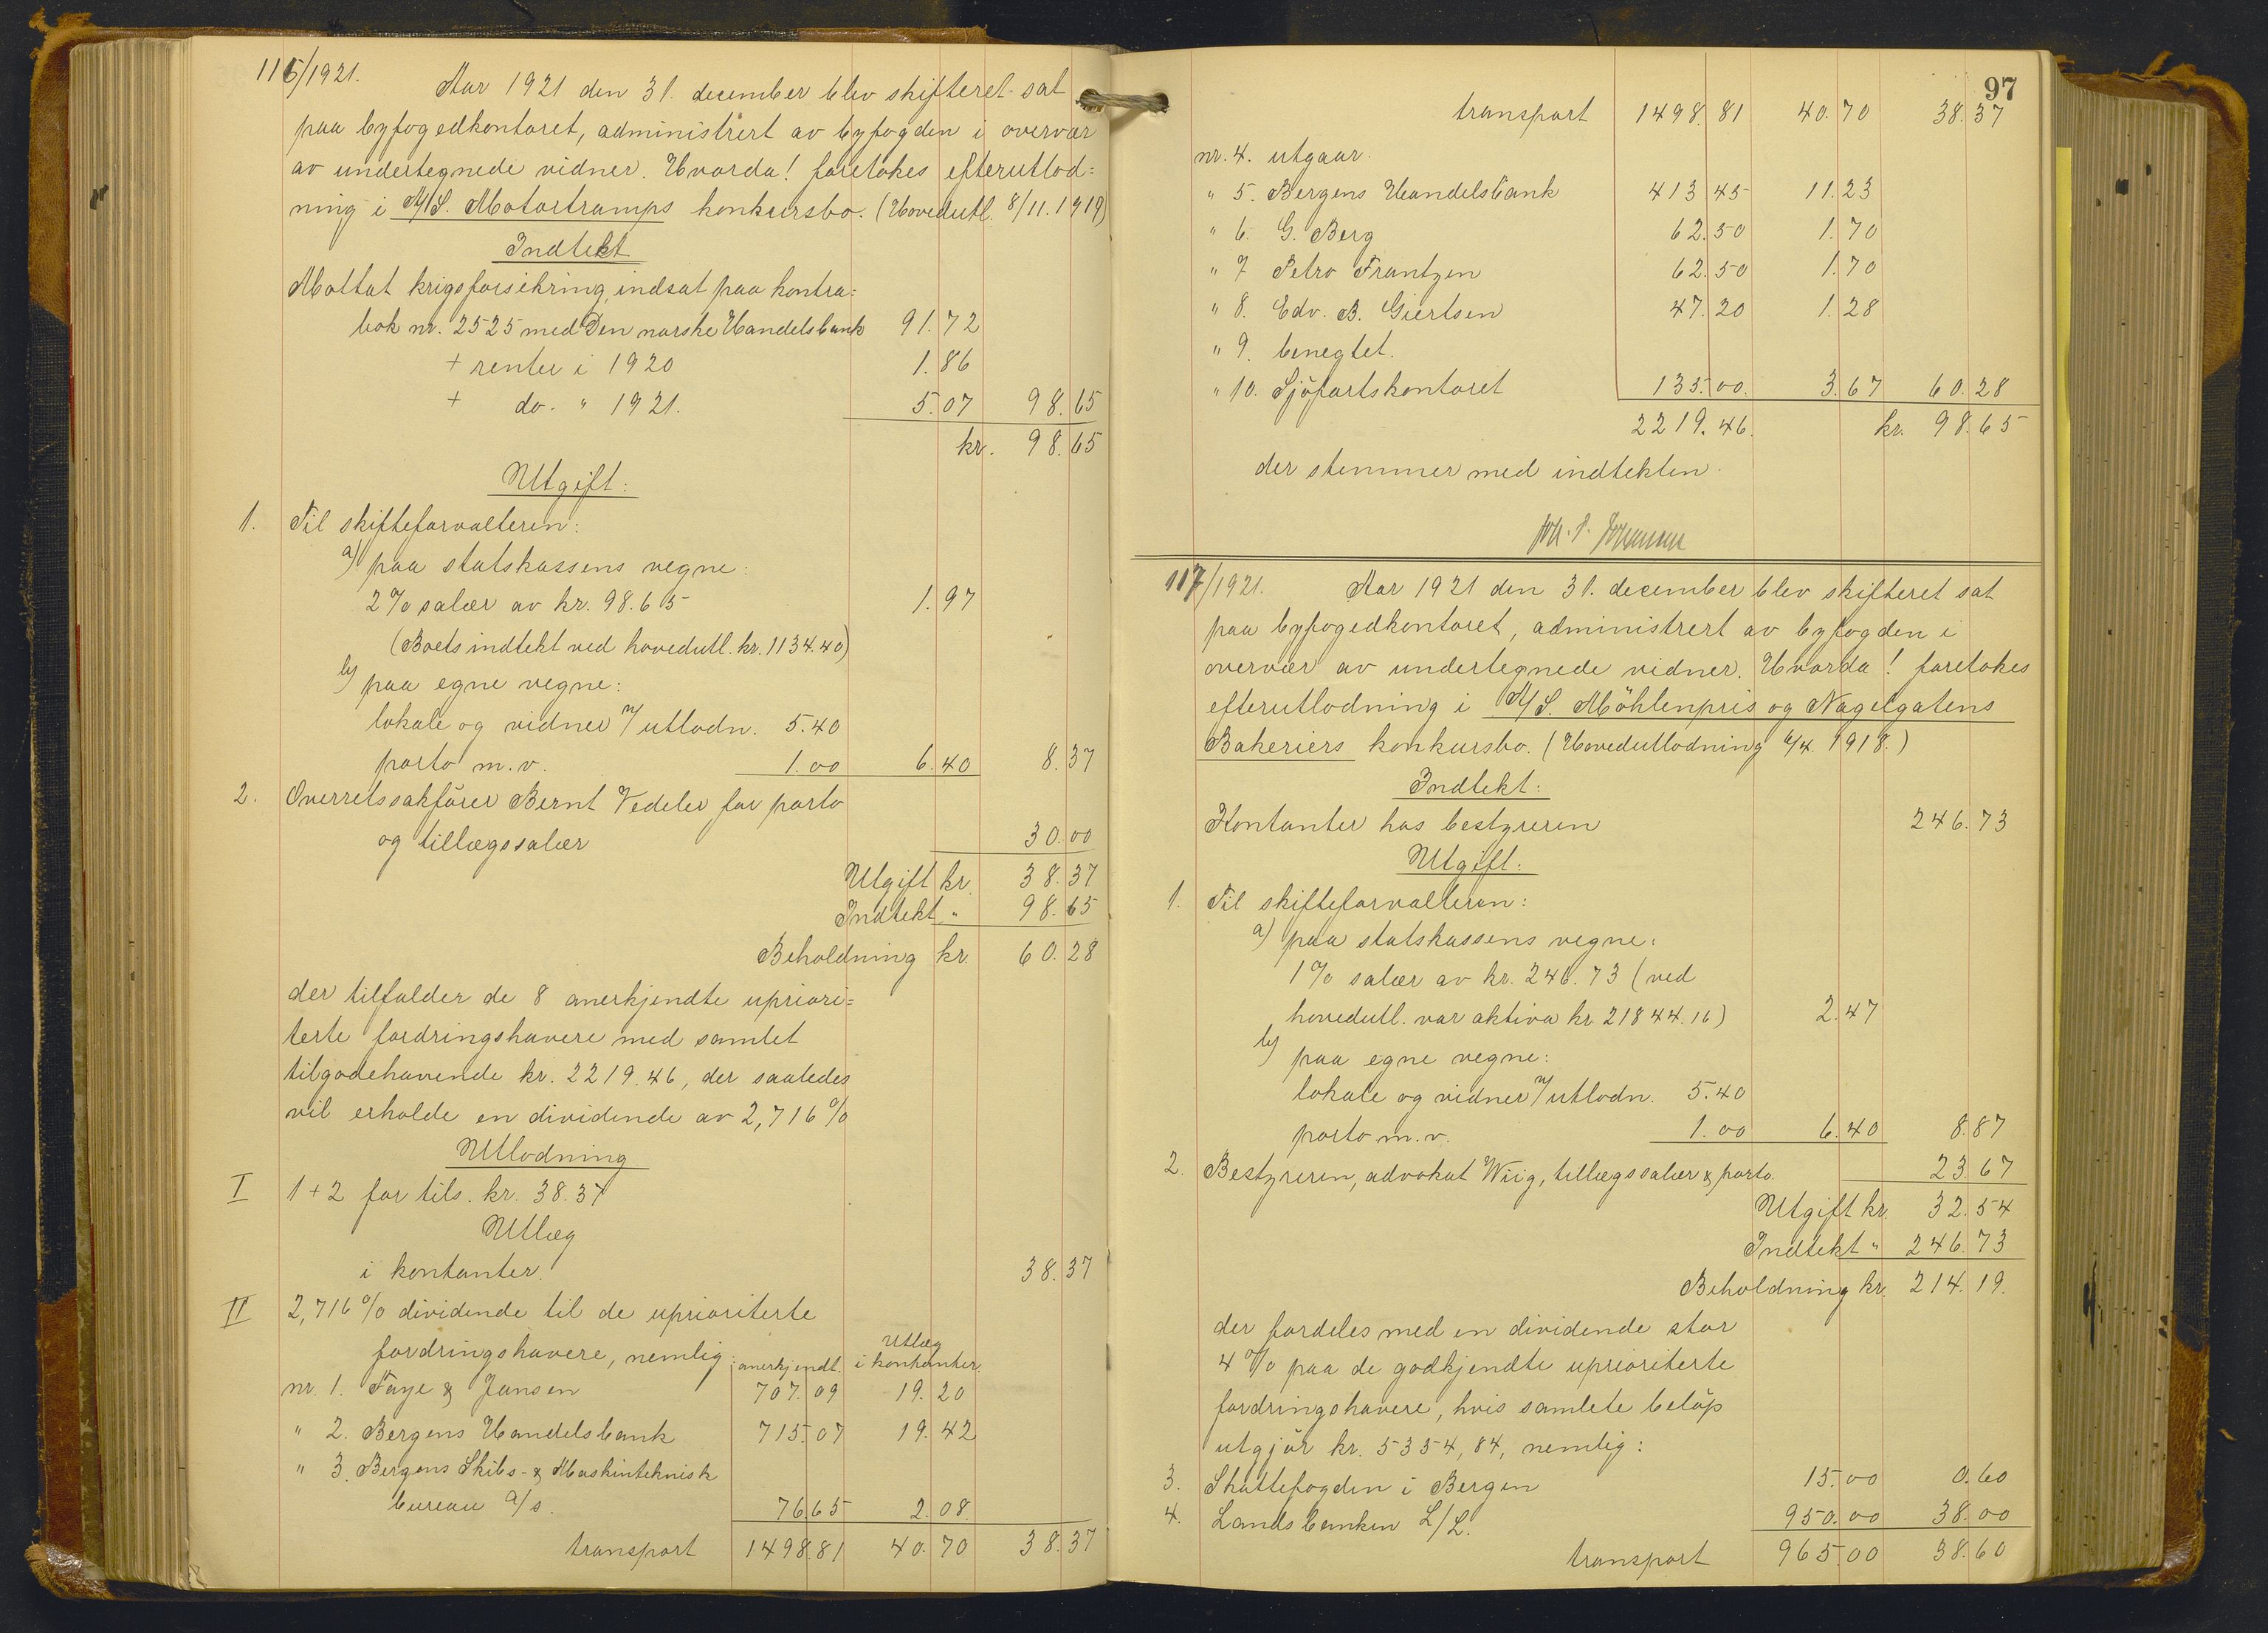 116/1921.
Aar 1921 den 31. december blev skifteret sat
paa byfogedkontoret, administrert av byfogden i overvær
av undertegnede vidner. Hvorda! foretokes efterutlod=
ning i A/S. Motortramps konkursbo. (Hovedutl. 8/11. 1919)
Indtekt
Mottat krigsforsikring, indsat paa kontra=
bok nr. 2525 med Den norske Handelsbank 91.72
+ renter i 1920 1.86
+ do. " 1921. 5.07 98.65
kr. 98.65
Utgift:
1. Til skifteforvalteren:
a) paa statskassens vegne:
2% salær av kr. 98.65 1.97
(Boets indtekt ved hovedutl. kr. 1134.40)
b) paa egne vegne:
lokale og vidner v/ utlodn. 5.40
porto m.v. 1.00 6.40 8.37
2. Overretssakfører Bernt Vedeler for porto
og tillægssalær 30.00
Utgift kr. 38.37
Indtekt " 98.65
Beholdning kr. 60.28
der tilfalder de 8 anerkjendte upriori=
terte fordringshavere med samlet
tilgodehavende kr. 2219.46, der saaledes
vil erholde en dividende av 2,716%
Utlodning
I 1+2 for tils. kr. 38.37
Utlæg
i kontanter. 38.37
II 2,716% dividende til de uprioriterte
fordringshavere, nemlig: anerkjendt. Utlæg i kontanter
nr. 1. Faye & Jansen 707.09 19.20
" 2. Bergens Handelsbank 715.07 19.42
" 3. Bergens Skibs- & Maskinteknisk
bureau a/s. 76.65 2.08.
transport 1498.81 40.70 38.37
97
transport 1498.81 40.70 38.37
nr. 4. utgaar.
" 5. Bergens Handelsbank 413.45 11.23
" 6. G. Berg 62.50 1.70
" 7 Petro Frantzen 62.50 1.70
" 8. Edv. B. Giertsen 47.20 1.28
" 9. benegtet.
" 10. Sjöfartskontoret 135.00. 3.67 60.28
2219.46. kr. 98.65
der stemmer med indtekten.
117/1921.
Aar 1921 den 31. december blev skifteret sat
paa byfogedkontoret, administrert av byfogden i
overvær av undertegnede vidner. Hvorda! foretokes
efterutlodning i A/S. Möhlenpris og Nagelgatens
Bakeriers konkursbo. (Hovedutlodning 6/4. 1918.)
Indtekt:
Kontanter hos bestyreren 246.73
Utgift:
1. Til skifteforvalteren:
a) paa statskassens vegne:
1% salær av kr. 246.73 (ved
hovedutl. var aktiva kr. 21844.16) 2.47
b) paa egne vegne:
lokale og vidner v/ utlodn. 5.40
porto m.v. 1.00 6.40 8.87
2. Bestyreren, advokat Wiig, tillægssalær & porto. 23.67
Utgift kr. 32.54
Indtekt " 246.73
Beholdning kr. 214.19.
der fordeles med en dividende stor
4% paa de godkjendte uprioriterte
fordringshavere, hvis samlete belöp
utgjör kr. 5354,84, nemlig:
3. Skattefogden i Bergen 15.00 0.60
4. Landsbanken L/L. 950.00 38.00
transport 965.00 38.60